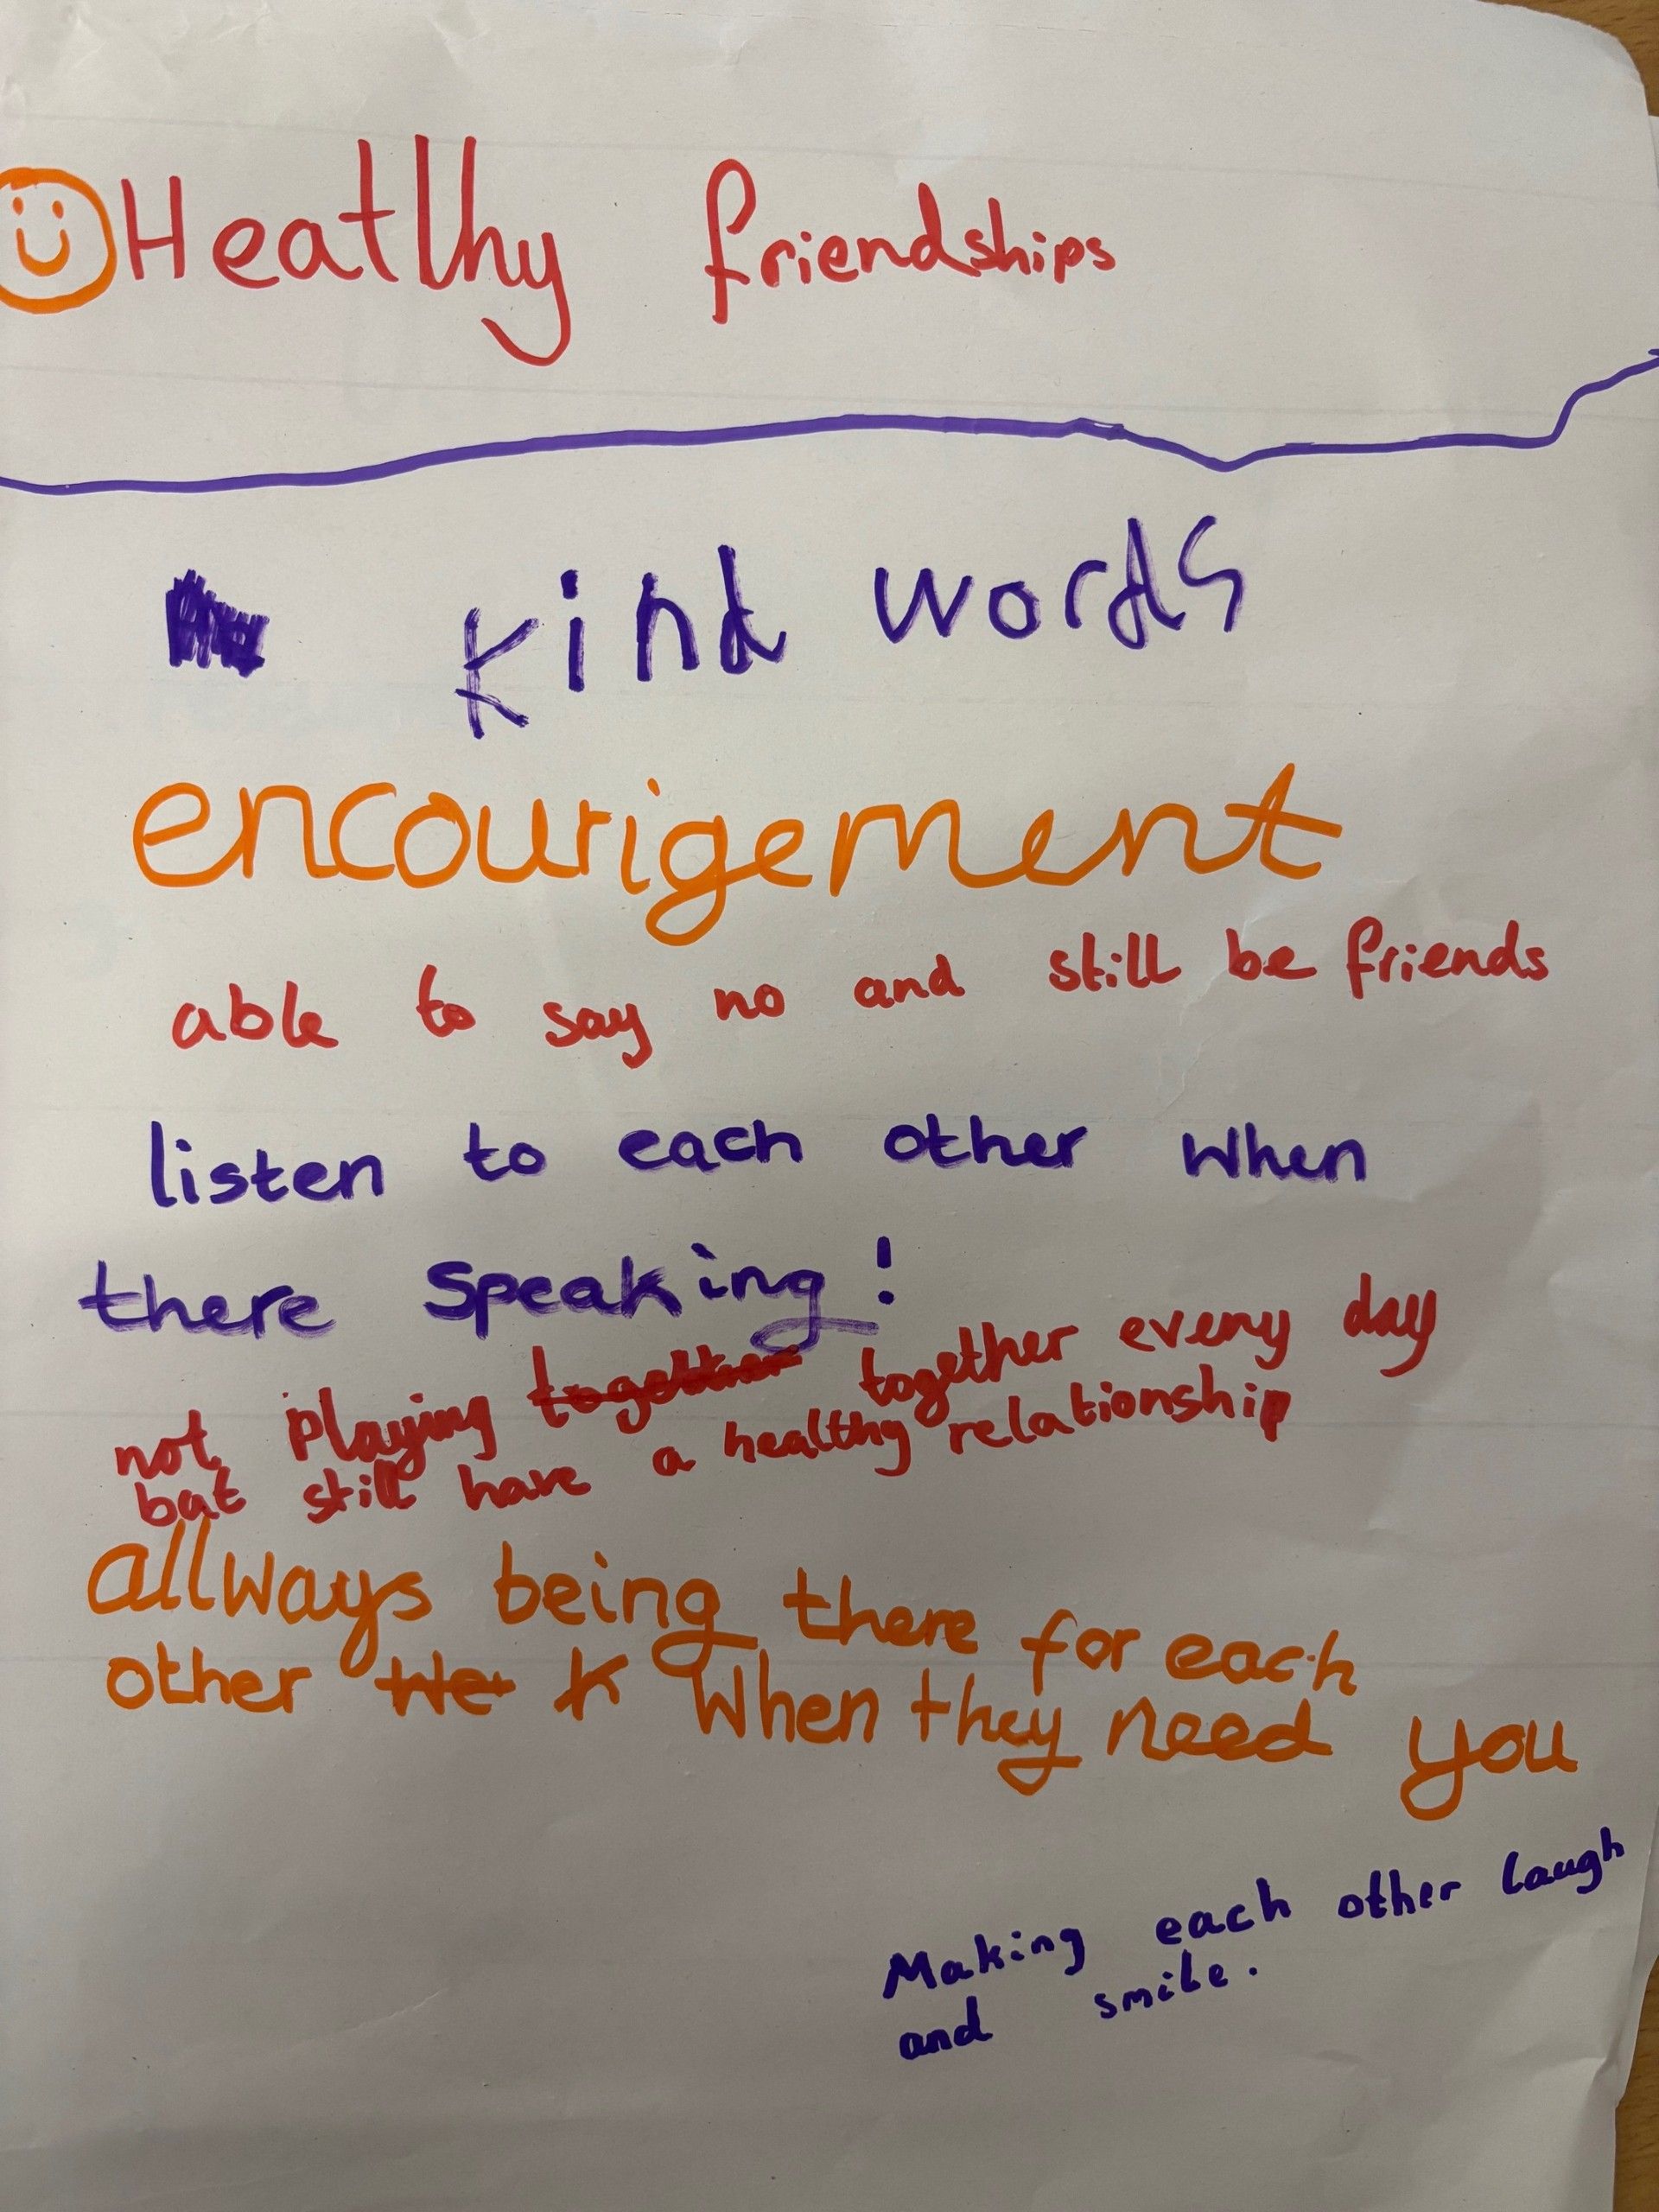 Heatlhy friendships
kind words
encourigement
able to say no and still be friends
listen to each other when
there speaking!
not playing together together every day
but still have a healthy relationship
allways being there for each
other k when they need you
Making each other laugh
and smile.